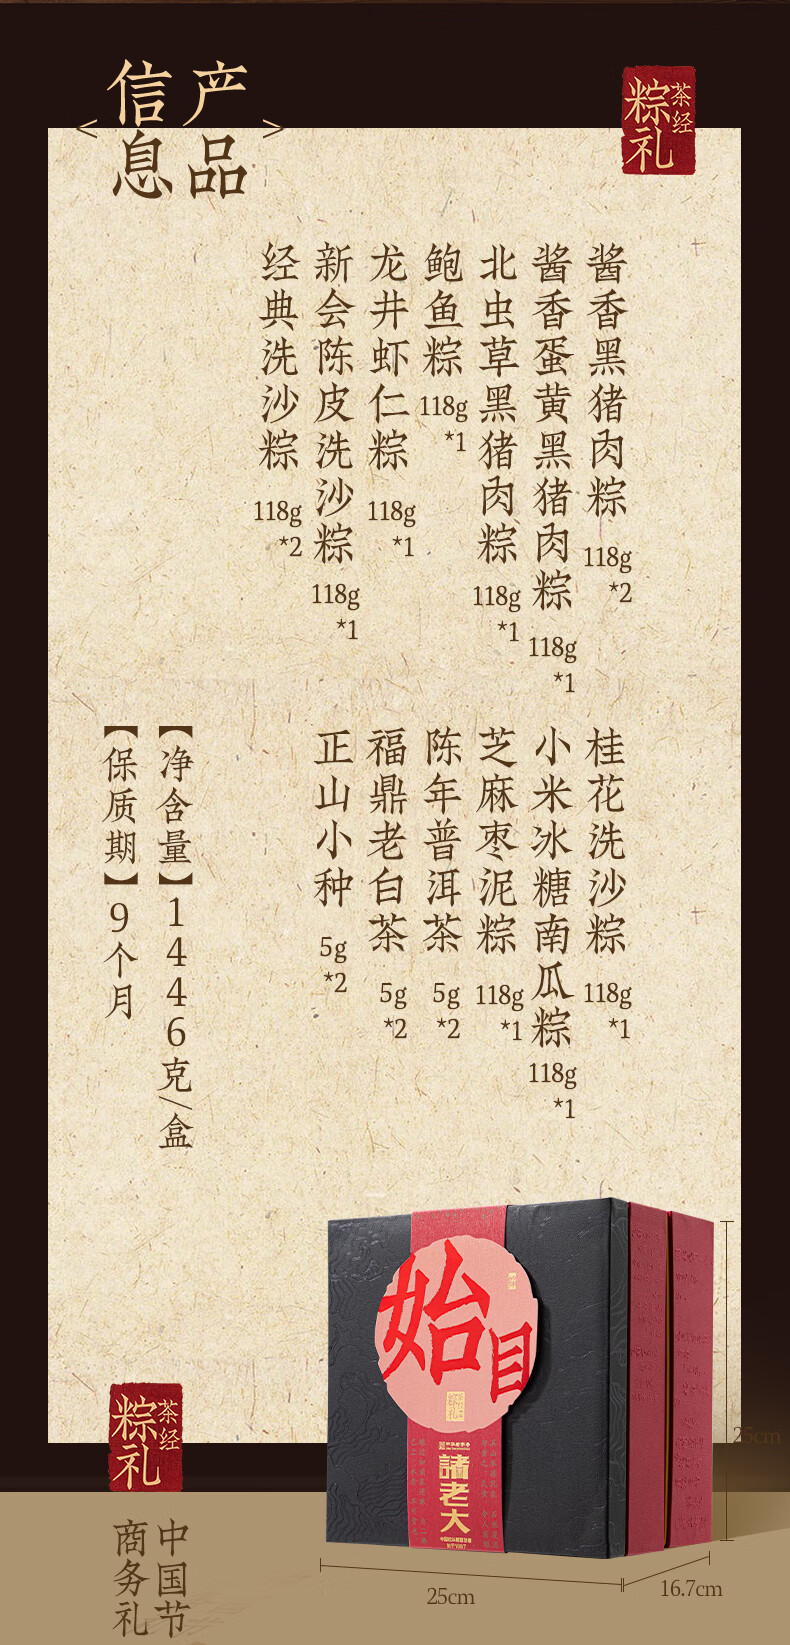 产品
信息
茶经
粽礼
酱香黑猪肉粽 118g*2
酱香蛋黄黑猪肉粽 118g*1
北虫草黑猪肉粽 118g*1
鲍鱼粽 118g*1
龙井虾仁粽 118g*1
新会陈皮洗沙粽 118g*1
经典洗沙粽 118g*2
桂花洗沙粽 118g*1
小米冰糖南瓜粽 118g*1
芝麻枣泥粽 118g*1
陈年普洱茶 5g*2
福鼎老白茶 5g*2
正山小种 5g*2
【净含量】1446克/盒
【保质期】9个月
始
諸老大
25cm
25cm
16.7cm
茶经
粽礼
中国节
商务礼